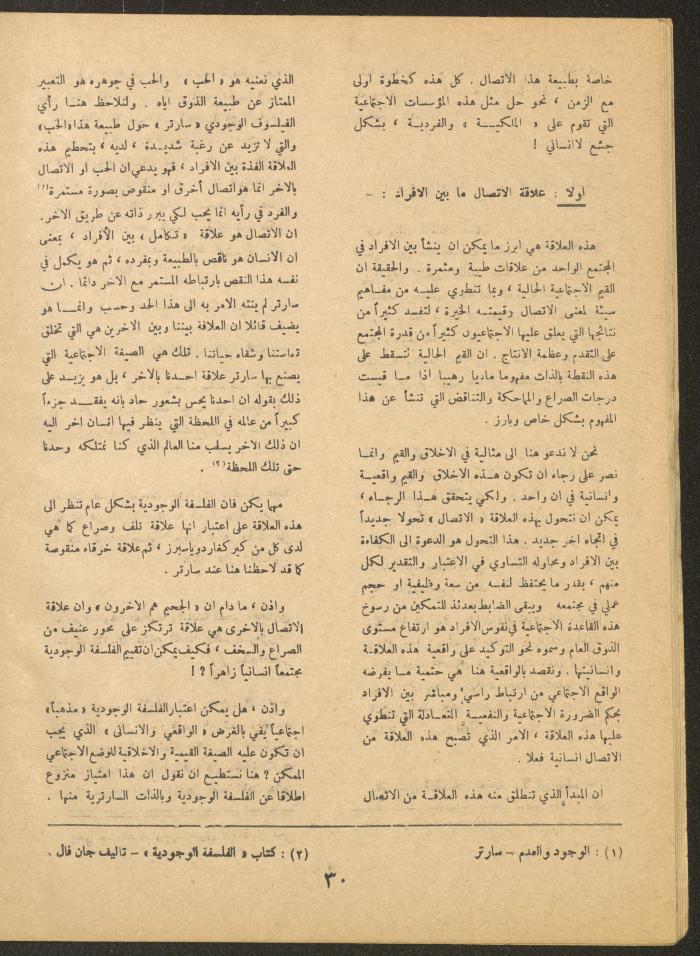 خاصة بطبيعة هذا الاتصال . كل هذه كخطوة اولى
مع الزمن ، نحو حل مثل هذه المؤسسات الاجتماعية
التي تقوم على « الملكيـــة » والفردية ، بشكل
جشع لاانساني !
اولا : علاقة الاتصال ما بين الافراد : –
هذه العلاقة هي ابرز ما يمكن ان ينشأ بين الافراد في
المجتمع الواحد من علاقات طيبة ومثمرة . والحقيقة ان
القيم الاجتماعية الحالية ، وبما تنطوي عليــه من مفــاهيم
سيئة لمعنى الاتصال وقيمتــه الخيرة ، لتفسد كثيراً من
نتائجها التي يعلق عليها الاجتماعيون كثيراً من قدرة المجتمع
على التقدم وعظمة الانتاج . ان القيم الحالية تسقط على
هذه النقطة بالذات مفهوما ماديا رهيبا اذا مــا قيست
درجات الصراع والمماحكة والتناقض التي تنشأ عن هذا
المفهوم بشكل خاص وبارز .
نحن لا ندعو هنا الى مثالية في الاخلاق والقيم وانمــا
نصر على رجاء ان تكون هــذه الاخلاق والقيم واقعيــة
وانسانية في ان واحد . ولكي يتحقق هــذا الرجــاء ،
يمكن ان نتحول بهذه العلاقة « الاتصال » تحولا جديداً
في اتجاه اخر جديد . هذا التحول هو الدعوة الى الكفاءة
بين الافراد ومحاوله التساوي في الاعتبار والتقدير لكل
منهم ، بقدر ما يحتفظ لنفســه من سعة وظيفية او حجم
عملي في مجتمعه ويبقى الضابط بعدئذ للتمكين من رسوخ
هذه القاعدة الاجتماعية في نفوس الافراد هو ارتفاع مستوى
الذوق العام وسموه نحو التوكيد على واقعية هذه العلاقــة
وانسانيتها . ونقصد بالواقعية هنا هي حتمية مــا يفرضه
الواقع الاجتماعي من ارتباط راسي ومباشر بين الافراد
بحكم الضرورة الاجتماعية والنفعيــة المتعــادلة التي تنطوي
عليها هذه العلاقة ، الامر الذي تصبح هذه العلاقة من
الاتصال انسانية فعلا .
ان المبدأ الذي تنطلق منه هذه العلاقــة من الاتصال
الذي نعنيه هو « الحب » والحب في جوهره هو التعبير
الممتاز عن طبيعة الذوق اياه . ولنلاحظ هنــا رأي
الفيلسوف الوجودي « سارتر » حول طبيعة هذا «الحب»
والتي لا تزيد عن رغبة شديــدة ، لديه ، بتحطيم هذه
العلاقة الفذة بين الافراد ، فهو يدعي ان الحب او الاتصال
بالاخر انما هو اتصال أخرق او منقوص بصورة مستمرة(١)
والفرد في رأيه انما يحب لكي يبرر ذاته عن طريق الاخر.
ان الاتصال هو علاقة « تكامل » بين الأفراد ، بمعنى
ان الانسان هو ناقص بالطبيعة وبمفرده ، ثم هو يكمل في
نفسه هذا النقص بارتباطه المستمر مع الاخر دائما . ان
سارتر لم ينته الامر به الى هذا الحد وحسب وانمــا هو
يضيف قائلا ان العلاقة بيننا وبين الاخرين هي التي تخلق
تعاستنا وشقاء حياتنا . تلك هي الصيغة الاجتماعية التي
يصنع بها سارتر علاقة احدنا بالاخر ، بل هو يزيــد على
ذلك بقوله ان احدنا يحس بشعور حاد بانه يفقــد جزءاً
كبيراً من عالمه في اللحظة التي ينظر فيها انسان اخر اليه
ان ذلك الاخر يسلب منا العالم الذي كنا نمتلكه وحدنا
حتى تلك اللحظة(٢) .
مهما يكن فان الفلسفة الوجودية بشكل عام تنظر الى
هذه العلاقة على اعتبار انها علاقة تلف وصراع كما هي
لدى كل من كيركغارد وياسبرز ، ثم علاقة خرقاء منقوصة
كما قد لاحظنا هنا عند سارتر .
واذن ، ما دام ان « الجحيم هم الاخرون » وان علاقة
الاتصال بالاخرى هي علاقة ترتكز على محور عنيف من
الصراع والسخف ، فكيف يمكن ان تقييم الفلسفة الوجودية
مجتمعاً انسانياً زاهراً ? !
واذن ، هل يمكن اعتبار الفلسفة الوجودية « مذهباً»
اجتماعياً يفي بالغرض « الواقعي والانساني » الذي يجب
ان تكون عليه الصيغة القيمية والاخلاقية للوضع الاجتماعي
الممكن ? هنا نستطيــع ان نقول ان هذا امتياز منزوع
اطلاقا عن الفلسفة الوجودية وبالذات السارترية منها .
(١) : الوجود والعدم – سارتر
(٢) : كتاب « الفلسفة الوجودية » – تاليف جان فال .
٣٠